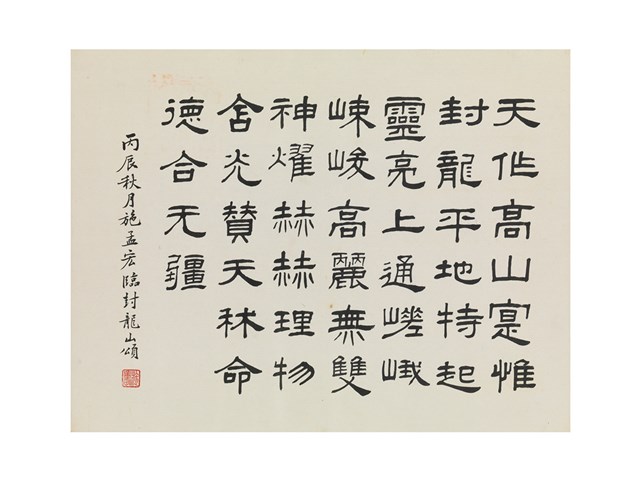 天作高山寔惟
封龍平地特起
靈亮上通嵯峨
竦峻高麗無雙
神燿赫赫理物
含光贊天休命
德合无疆
丙辰秋月施孟宏臨封龍山頌